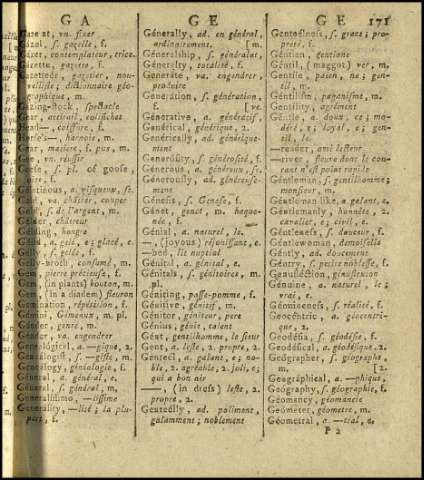 GA
GE
GE
171
Gaze at, vn. fixer
Gázel, s. gazelle, f.
Gázer, contemplateur, trice
Gazette, gazette, f.
Gazettede, gazetier, nou-
velliste; dictionnaire géo-
graphique, m.
Gázing-stock, spectacle
Gear, attirail, colifichet
Head—, coiffure, f.
Horse's—, harnois, m.
Gear, matiere, f. pus, m.
Gee, vn. réussir
Geese, s. pl. of goose,
f.
Gelátinous, a. visqueux, se
Geld, va. châtrer, couper
Geld, s. de l'argent, m.
Gelder, châtreur
Gelding, hongre
Gelid, a. gelé, e; glacé, e.
Gelly, s. gelée, f.
Gelly-broth, consumé, m.
Gem, pierre précieuse, f.
Gem, (in plants) bouton, m.
Gem, (in a diadem) fleuron
Gemination, répétition, f.
Gémini, Gémeaux, m. pl.
Génder, genre, m.
Génder, va. engendrer
Genealógical, a. —gique, 2.
Genealogist, s. —giste, m.
Genealogy, généalogie, f.
Géneral, a. général, e.
Géneral, s. général, m.
Generalíssimo, —issime
Generality, —lité; la plu-
part, f.
Génerally, ad. en général,
ordinairement. [m.
Géneralship, s. généralat,
Géneralty, totalité, f.
Génerate, va. engendrer,
produire
Generátion, s. génération,
f. [ve.
Génerative, a. génératif,
Genérical, générique, 2.
Genérically, ad. générique-
ment
Generósity, s. générosité, f.
Génerous, a. généreux, se.
Génerously, ad. généreuse-
ment
Génesis, s. Genese, f.
Génet, genet, m. haque-
née, f.
Génial, a. naturel, le.
—, (joyous) réjouissant, e.
—bed, lit nuptial
Génital, a. génital, e.
Génitals, s. génitoires, m.
pl.
Géniting, passe-pomme, f.
Génitive, génitif, m.
Génitor, géniteur, pere
Génius, génie, talent
Gent, gentilhomme, le sieur
Gent, a. leste, 2. propre, 2.
Genteel, a. galant, e; no-
ble, 2. agréable, 2. joli, e;
qui a bon air
—, (in dress) leste, 2.
propre, 2.
Gentéelly, ad. poliment,
galamment, noblement
Genteélness, s. grace; pro-
preté, f.
Géntian, gentiane
Géntil (maggot) ver, m.
Géntile, paien, ne; gen-
til, m.
Géntilism, paganisme, m.
Gentílity, agrément
Géntle, a. doux, ce; mo-
déré, e; loyal, e; gen-
til, le;
—reader, ami lecteur
—river, fleuve dont le cou-
rant n'est point rapide
Géntleman, s. gentilhomme;
monsieur, m.
Géntleman like, a. galant, e.
Géntlemanly, honnête, 2.
cavalier, e; civil, e.
Géntleness, s. douceur, f.
Géntlewoman, demoiselle
Géntly, ad. doucement
Géntry, s. petite noblesse, f.
Genuflèction, génuflexion
Génuine, a. naturel, le;
vrai, e.
Génuineness, s. réalité, f.
Geocéntric, a. géocentri-
que, 2.
Geodésia, s. géodésie, f.
Geodétical, a. géodésique, 2.
Geógrapher, s. géographe,
m. [2.
Geográphical, a. —phique,
Geógraphy, s. géographie, f.
Géomancy, géomancie
Geómeter, géometre, m.
Geómetral, a. —tral, e.
P 2